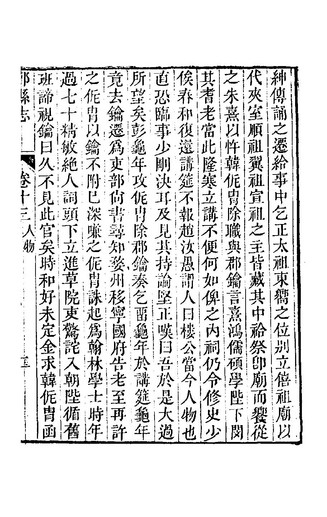 紳傳誦之遷給事中乞正太祖東嚮之位別立僖祖廟以
代夾室順祖翼祖宣祖之主皆藏其中祫祭卽廟而饗從
之朱熹以忤韓侂冑除職與郡鑰言熹鴻儒碩學陛下閔
其耆老當此隆寒立講不便何如俾之內祠仍令修史少
俟春和復還講筵不報趙汝愚謂人曰樓公當今人物也
直恐臨事少剛決耳及見其持論堅正嘆曰吾於是大過
所望矣彭龜年攻侂冑除郡鑰奏乞留龜年於講筵龜年
竟去鑰遷爲吏部尙書尋知婺州移寧國府告老至再許
之侂冑以鑰不附已深嗛之侂冑誅起爲翰林學士時年
過七十精敏絕人詞頭下立進草院吏驚詫入朝陛循舊
班諦視鑰曰久不見此官矣時和好未定金求韓侂冑函
鄞縣志
卷十三 人物